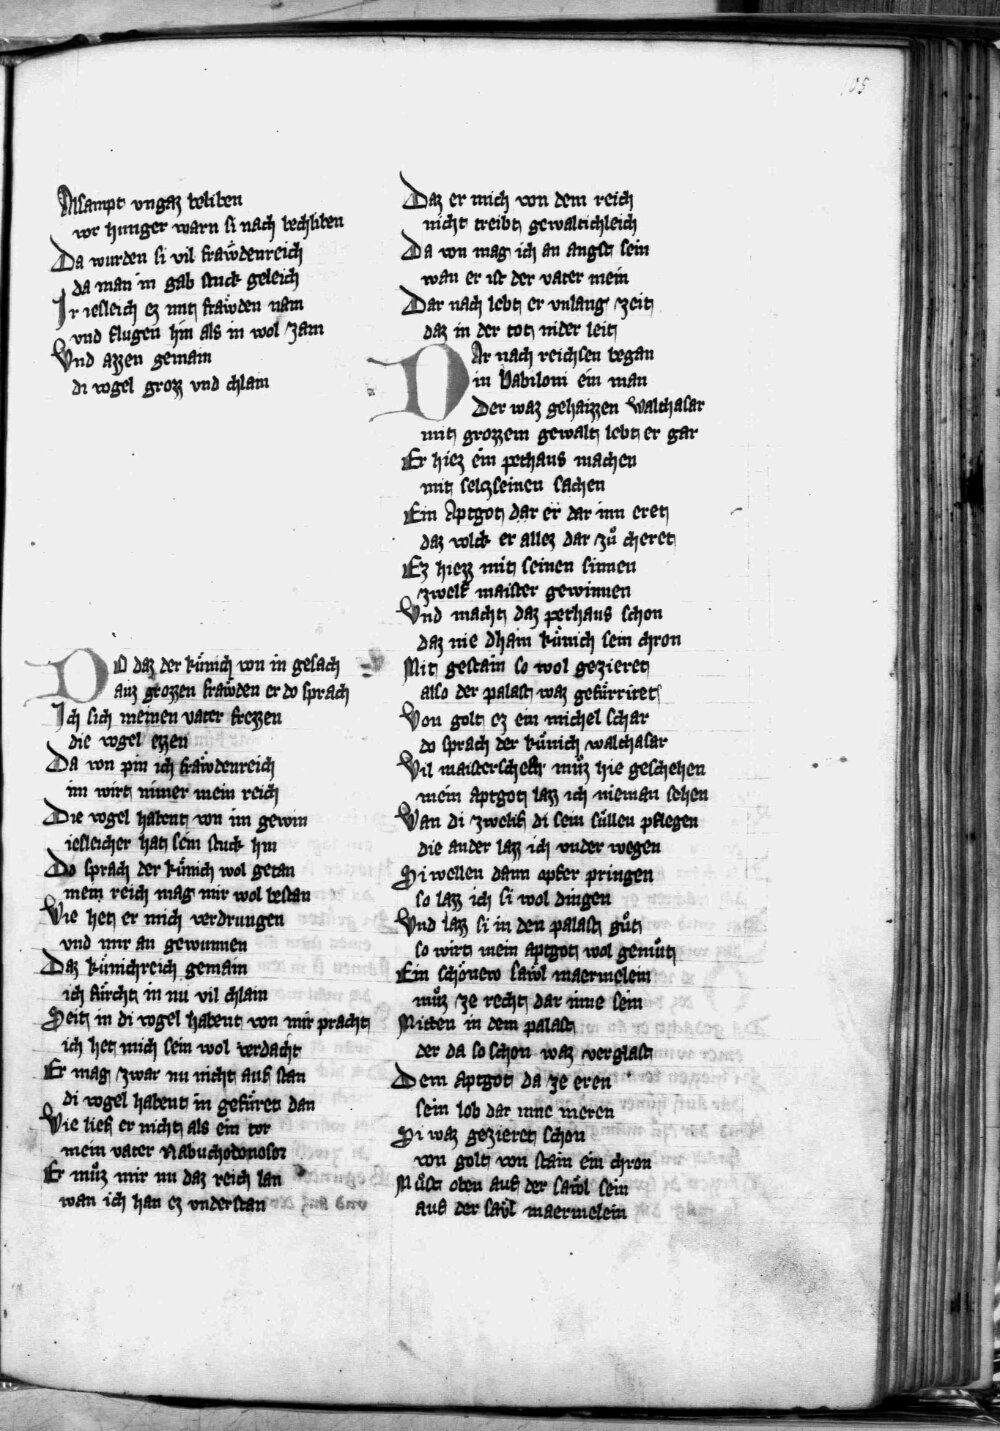 105
Alsampt vngaz beliben
vor hunger warn si nach bechliben
Da wurden si vil fraẘdenreich
da man in gab stuck geleich
Ir iesleich ez mit fraẘden nam
vnd flugen hin als in wol zam
Vnd azzen gemain
di vogel grozz vnd chlain
DO daz der kůnich von in gesach
auz grozzen fraẘden er do sprach
Ich sich meinen vater frezzen
die vogel ezzen
Da von pin ich fraẘdenreich
im wirt nimer mein reich
Die vogel habent von im gewin
iesleicher hat sein stuck hin
Do sprach der kůnich wol getan
mein reich mag mir wol bestan
Wie het er mich verdrungen
vnd mir an gewunnen
Daz kůnichreich gemain
ich fůrcht in nu vil chlain
Seit in di vogel habent von mir pracht
ich het mich sein wol verdacht
Er mag zwar nu nicht auf stan
di vogel habent in gefůret dan
Wie lief er nicht als ein tor
mein vater Nabuchodonosor
Er můz mir nu daz reich lan
wan ich han ez vnderstan
Daz er mich von dem reich
nicht treibt gewaltichleich
Da von mag ich an angst sein
wan er ist der vater mein
Dar nach lebt er vnlang zeit
daz in der tot nider leit
DAr nach reichsen began
in Babiloni ein man
Der waz gehaizzen Walthasar
mit grozzem gewalt lebt er gar
Er hiez ein pethaus machen
mit seltzseinen sachen
Ein Aptgot dar er dar inn eret
daz volck er allez dar zů cheret
Ez hiezz mit seinen sinnen
zwelf maister gewinnen
Vnd macht daz pethaus schon
daz nie dhain kůnich sein chron
Mit gestain so wol gezieret
also der palast waz gefůrriret
Von golt ez ein michel schar
do sprach der kůnich walthasar
Vil maisterscheft můz hie geschehen
mein aptgot lazz ich nieman sehen
Wan di zwelif di sein sůllen pflegen
die ander lazz ich vnder wegen
Si wellen dann opfer pringen
so lazz ich si wol dingen
Vnd lazz si in den palast gůt
so wirt mein aptgot wol gemůt
Ein schönew saẘl maermelein
můz ze recht dar inne sein
Mitten in dem palast
der da so schon waz verglast
Dem aptgot da ze eren
sein lob dar inne meren
Si waz gezieret schon
von golt von stain ein chron
Můst oben auf der saẘl sein
auf der saẘl maermelein